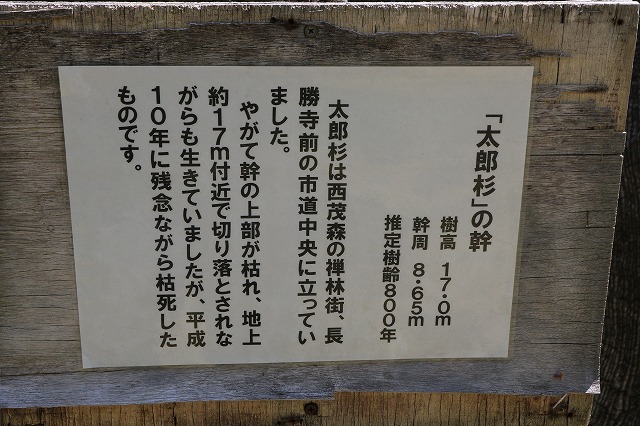 「太郎杉」の幹
樹高 17・0m
幹周 8・65m
推定樹齢800年
太郎杉は西茂森の禅林街、長
勝寺前の市道中央に立ってい
ました。
やがて幹の上部が枯れ、地上
約17m付近で切り落とされな
がらも生きていましたが、平成
10年に残念ながら枯死した
ものです。